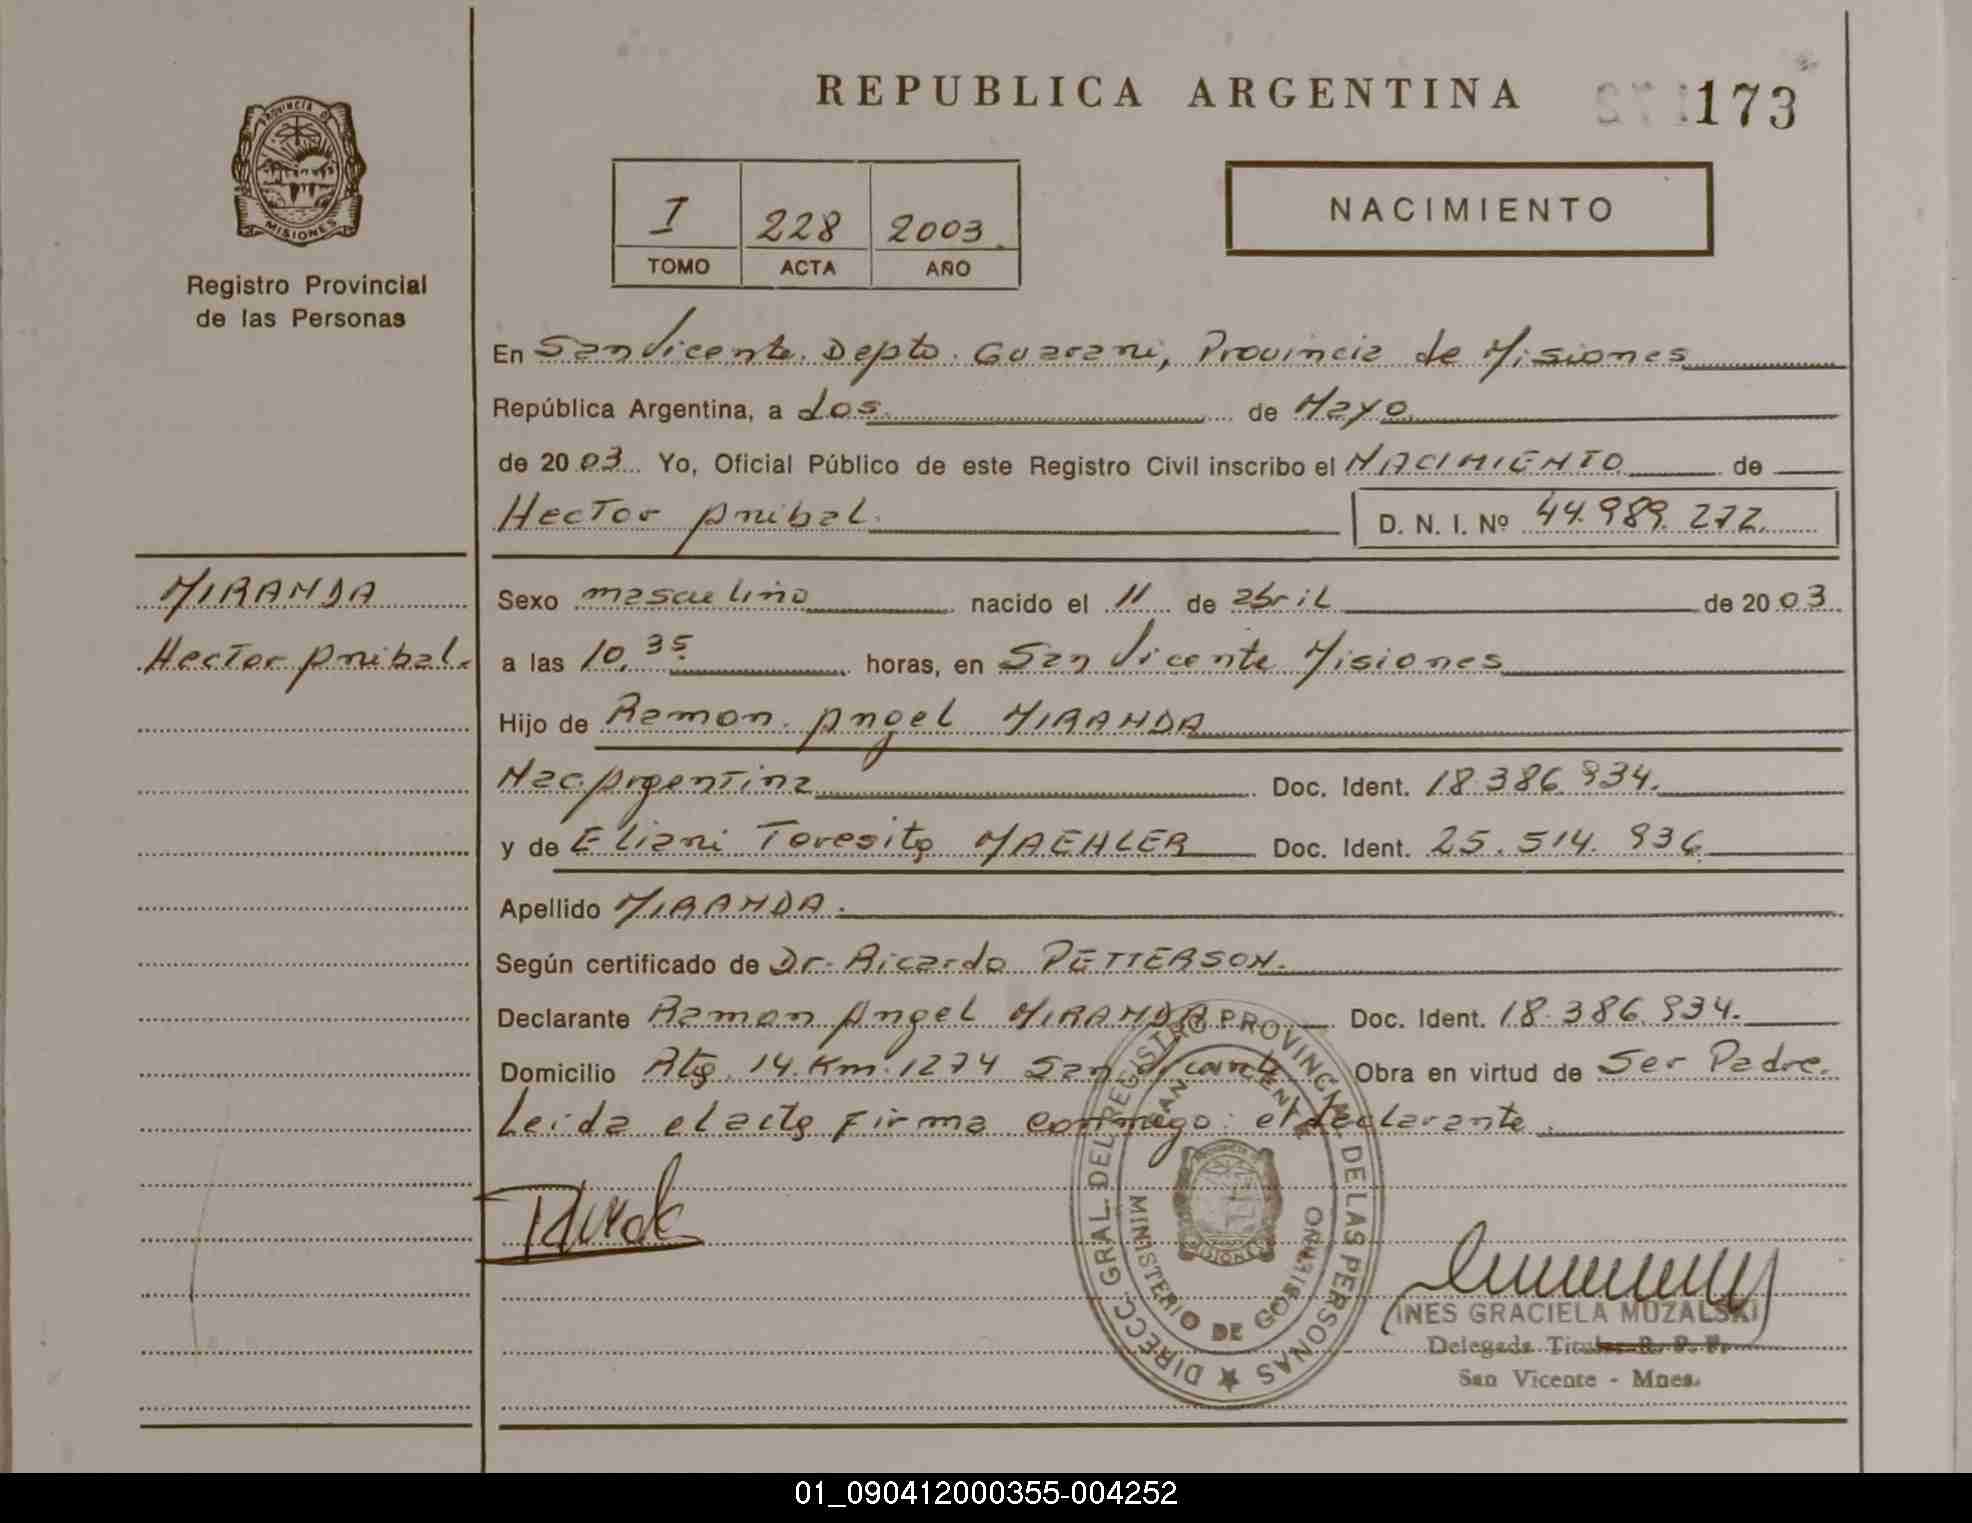 REPUBLICA ARGENTINA
173
PROVINCIA DE MISIONES
Registro Provincial
de las Personas
I 228 2003
TOMO ACTA AÑO
NACIMIENTO
En San Vicente. Depto. Guarani, Provincia de Misiones
República Argentina, a dos de Mayo
de 2003 Yo, Oficial Público de este Registro Civil inscribo el NACIMIENTO de
Hector Anibal. D. N. I. Nº 44.989.272.
MIRANDA
Hector Anibal.
Sexo masculino nacido el 11 de abril de 2003
a las 10,35 horas, en San Vicente Misiones
Hijo de Ramon Angel MIRANDA
Nac. Argentina Doc. Ident. 18.386.934.
y de Eliani Teresita MAEHLER Doc. Ident. 25.514.936
Apellido MIRANDA.
Según certificado de Dr. Ricardo PETTERSON.
Declarante Ramon Angel MIRANDA Doc. Ident. 18.386.934.
Domicilio Rta. 14. Km. 1274 San Vicente Obra en virtud de Ser Padre.
Leida el acta firma conmigo: el declarante.
DIRECC. GRAL. DEL REGISTRO PROVINCIAL DE LAS PERSONAS
SAN VICENTE
MINISTERIO DE GOBIERNO
MISIONES
INES GRACIELA MUZALSKI
Delegada Titular R. P. P.
San Vicente - Mnes.
01_090412000355-004252